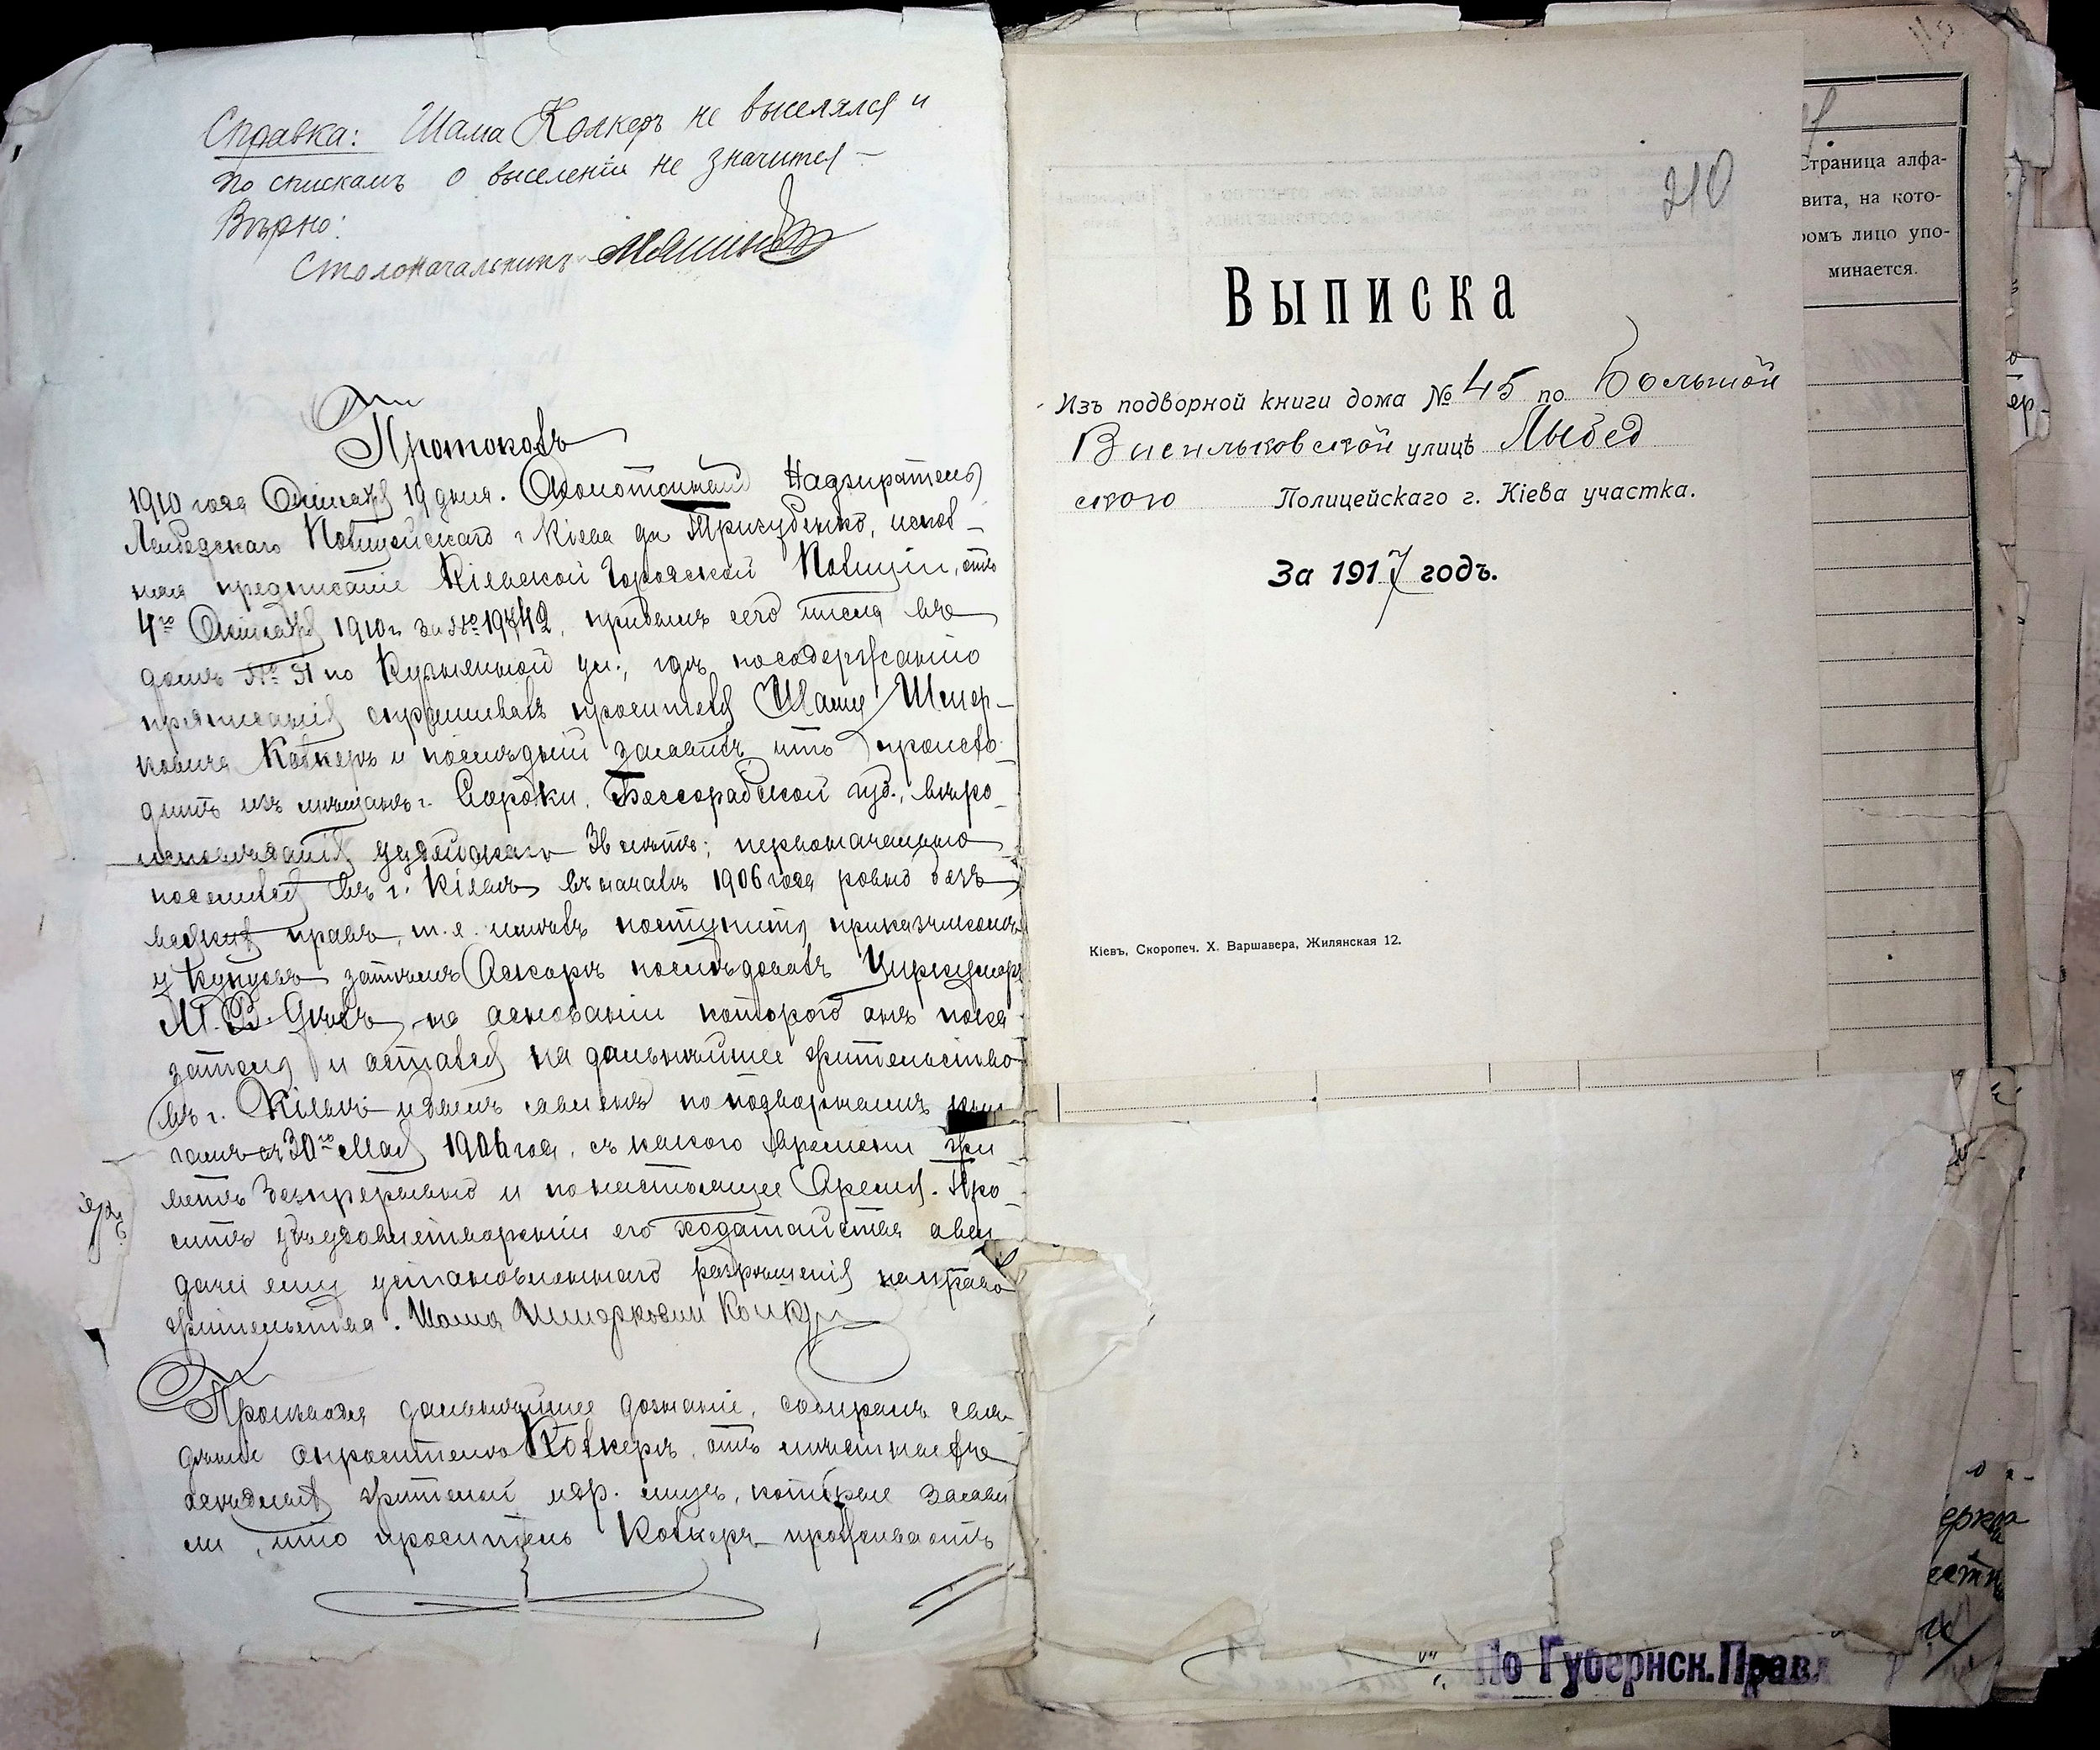 Справка: Шама Колкеръ не выселялся и
по спискамъ о выселеніи не значится –
Вѣрно:
Столоначальникъ
Протоколъ
1910 года Октября 19 дня. Околоточный Надзиратель
Лыбедскаго Полицейскаго г Кіева уч Тригубенко, испол-
няя предписаніе Кіевской Городской Полиціи, отъ
4го Октября 1910 г за № 19742, прибылъ сего числа въ
домъ № по Кузнечной ул., гдѣ по содержанію
предписанія спрашивалъ просителя Шаму Шмер-
ковича Колкеръ и послѣдній заявилъ что происхо-
дитъ изъ мѣщанъ г. Сороки, Бессарабской губ., вѣро-
исповѣданія іудейскаго лѣтъ; первоначально
поселился въ г. Кіевѣ въ началѣ 1906 года ровно безъ
всякихъ правъ, т.е. поступить приказчикомъ
у купцовъ затѣмъ вскорѣ послѣдовалъ Циркуляръ
М. В. Дѣлъ, на основаніи котораго онъ пока-
затель и остался на дальнѣйшее жительство
въ г. Кіевѣ и былъ явленъ по подворнымъ кни-
гамъ съ 30го Мая 1906 года, съ какого времени жи-
ветъ безпрерывно и по настоящее время. Про-
ситъ объ удовлетвореніи его ходатайства о вы-
дачи ему установленнаго разрѣшенія на право
жительства. Шама Шмеркович Колкер
Производя дальнѣйшее дознаніе, собиралъ свѣ-
дѣнія о просителѣ Колкерѣ, отъ мѣстныхъ
жителей мѣр. лицъ, которые заяви-
ли, что проситель Колкеръ проживаетъ
210
Выписка
Изъ подворной книги дома № 45 по Большой
Васильковской улицѣ Лыбед
ского Полицейскаго г. Кіева участка.
За 1917 годъ.
Кіевъ, Скоропеч. Х. Варшавера, Жилянская 12.
Страница алфа-
вита, на кото-
ромъ лицо упо-
минается.
По Губернск. Правл